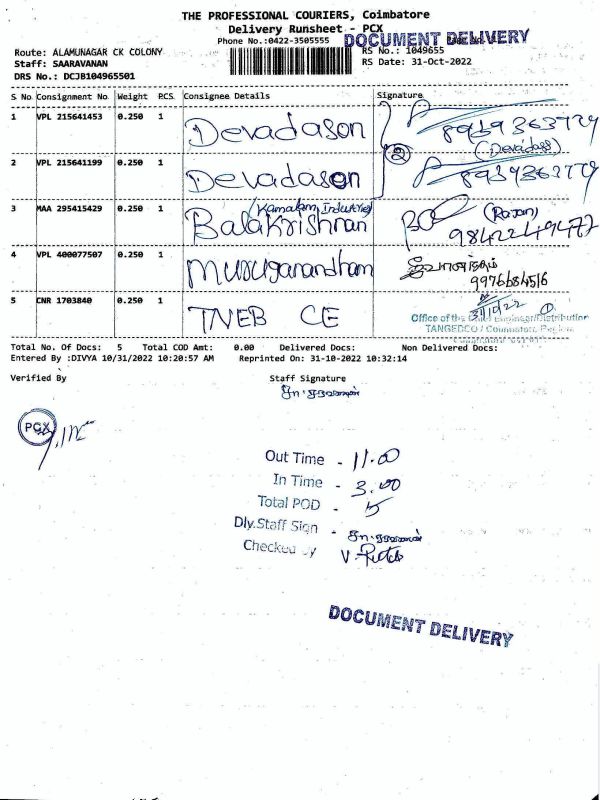 THE PROFESSIONAL COURIERS, Coimbatore
Delivery Runsheet - PCX
DOCUMENT DELIVERY
Phone No.:0422-3505555
Route: ALAMUNAGAR CK COLONY
RS No.: 1049655
Staff: SAARAVANAN
RS Date: 31-Oct-2022
DRS No.: DCJB104965501
S No Consignment No Weight PCS Consignee Details Signature
1 VPL 215641453 0.250 1 Devadason
(Devadass)
2 VPL 215641199 0.250 1 Devadason
2
3 MAA 295415429 0.250 1 Balakrishnan
(Kamalam Industries)
(Rajan)
9842249477
4 VPL 400077507 0.250 1 Muruganandham
9976684516
5 CNR 1703840 0.250 1 TNEB CE
31/10/22
Office of the Chief Engineer/Distribution
TANGEDCO / Coimbatore Region
Total No. Of Docs: 5 Total COD Amt: 0.00 Delivered Docs: Non Delivered Docs:
Entered By :DIVYA 10/31/2022 10:20:57 AM Reprinted On: 31-10-2022 10:32:14
Verified By Staff Signature
PCX
Out Time - 11.00
In Time - 3.00
Total POD - 5
Dly.Staff Sign -
Checked By
DOCUMENT DELIVERY